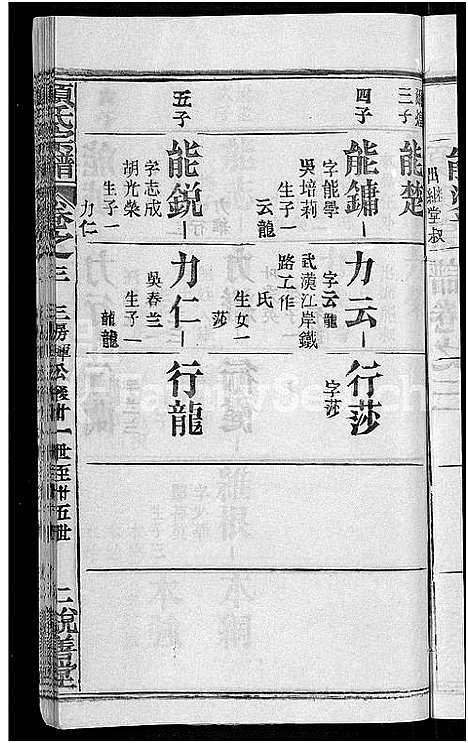 能
出繼堂叔
三子
能楚
四子
能鏞
字能學
吳培莉
生子一
云龍
力云
字云龍
武漢江岸鐵
路工作
氏
生女一
莎
行莎
字莎
五子
能銳
字志成
胡光榮
生子一
力仁
力仁
吳春兰
生子一
龍龍
行龍
項氏宗譜
卷之三
三房暉公後卄一世至卄五世
二